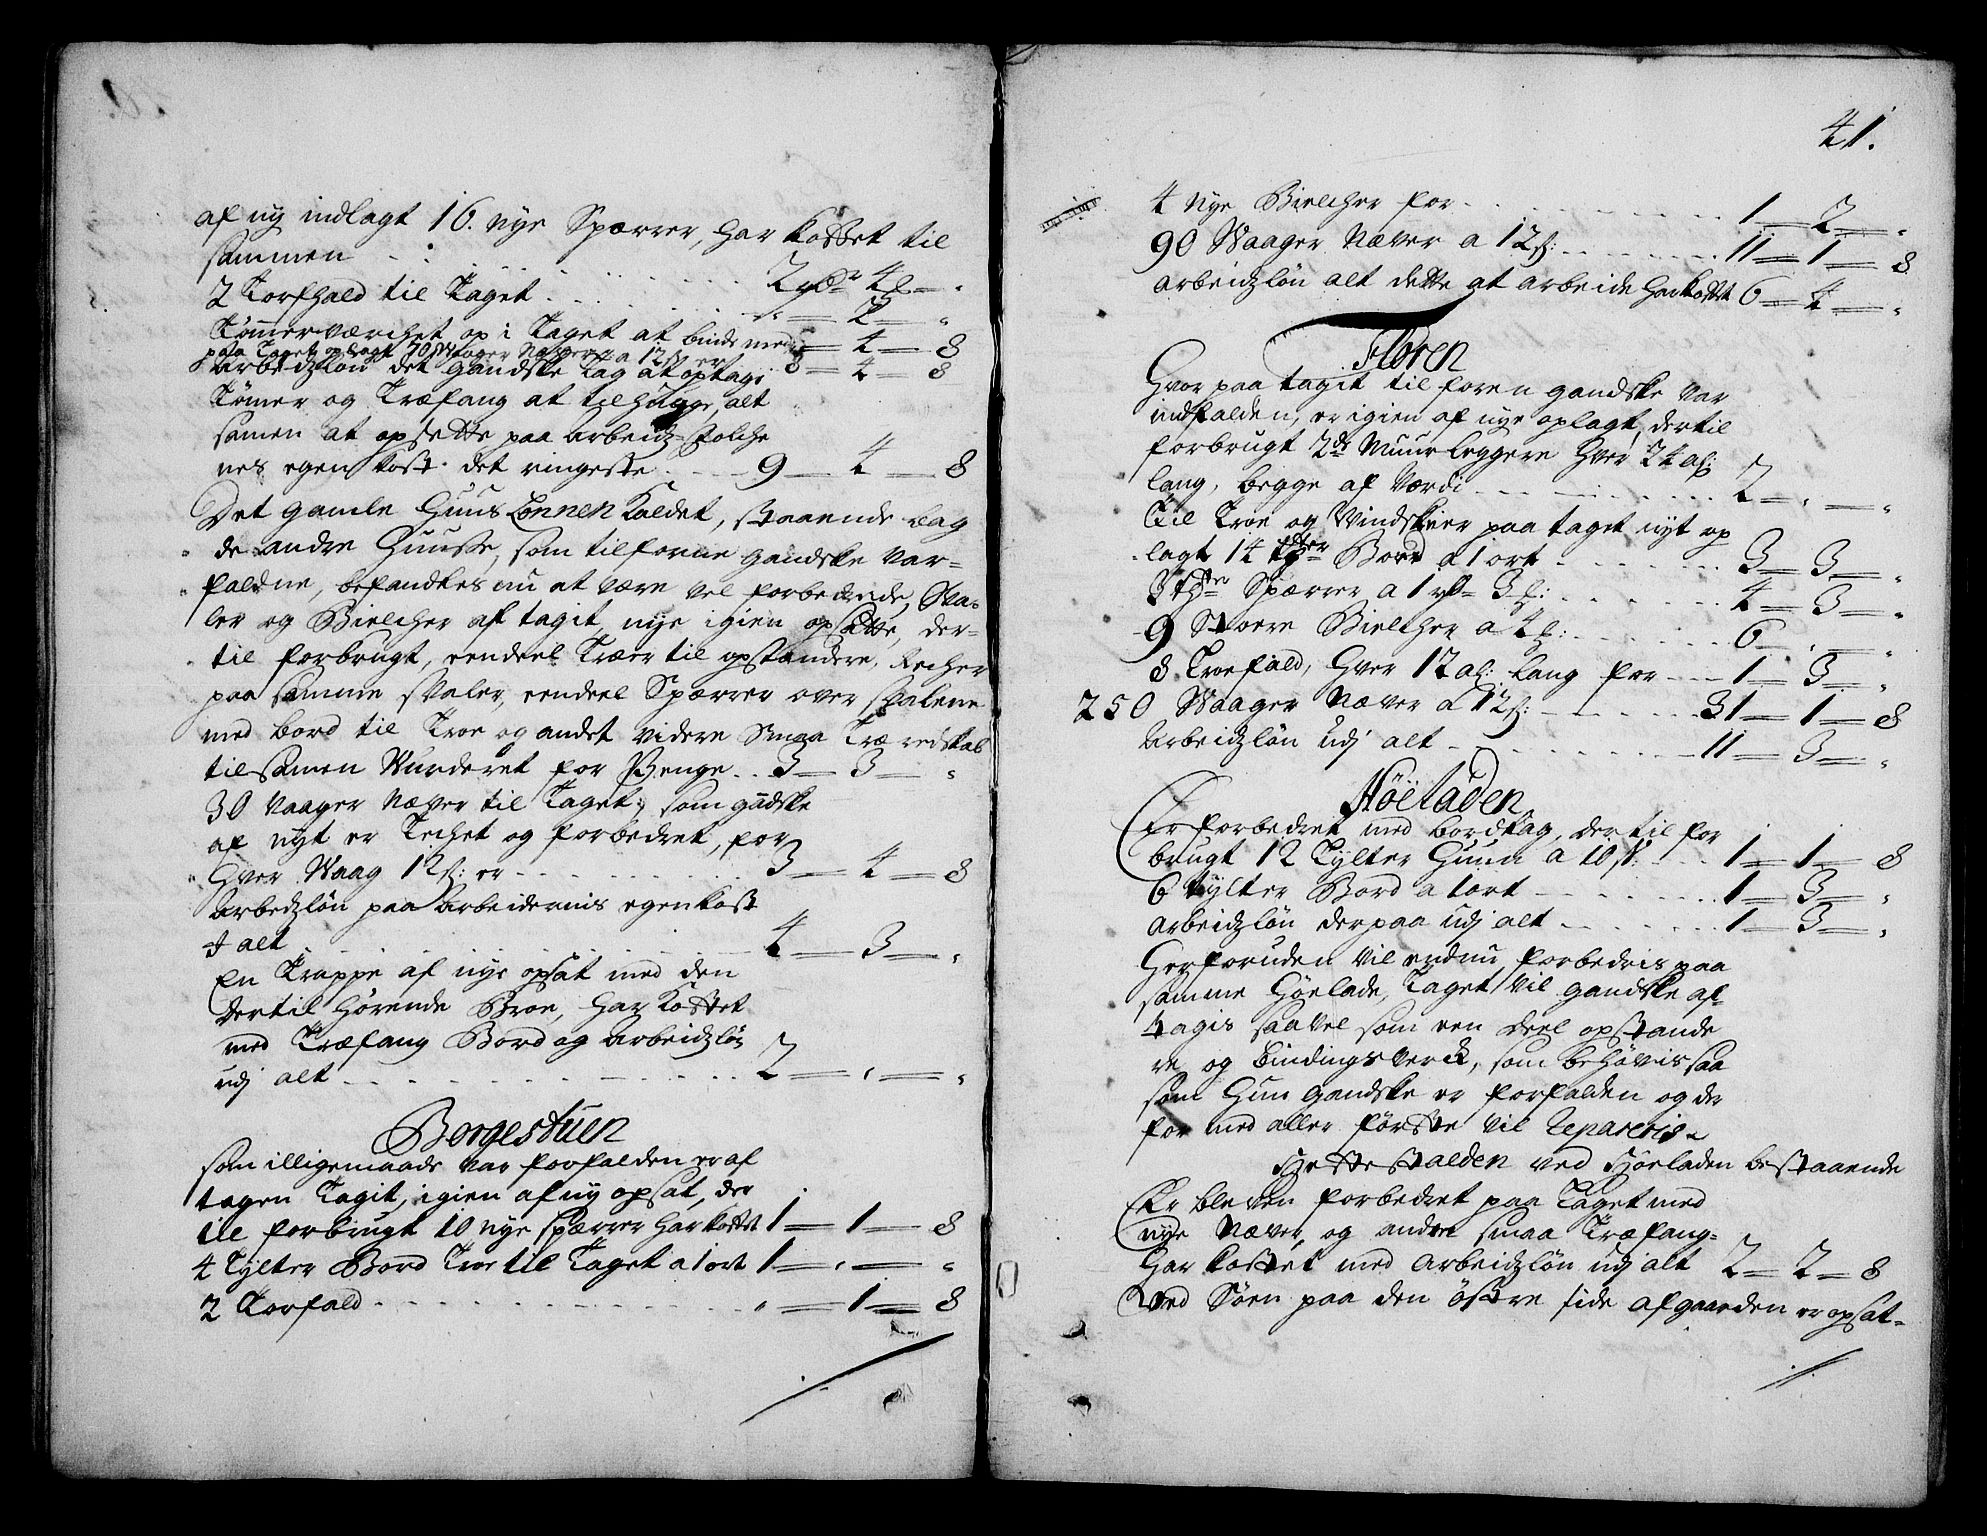 af ny indlagt 16. nye Spærrer, har kostet til
sammen 2 rdr 4 -
2 Torfhald til Taget - 2 -
Tømmerværchet op i Taget at binde med - 4 - 8
paa Taget oplagt 70 Waager Næver a 12 er 8 - 4 - 8
Arbeidzløn det gandske Tag at optagi
Tømer og Træfang at tilhugge, alt
samen at opsette paa arbeidz-folche
nes egen kost. det ringeste 9 - 4 - 8
Det gamle Huus Lonnen kaldet, staaende bag
de andre Huusse, som tilforne gandske var
faldne, befandtes nu at være vel forbedrede, Sva-
ler og Bielcher af tagit, nye igien opsatte, der-
til forbrugt, eendeel Træer til opstandere, Recher
paa samme svaler, eendeel Spærrer over svalene
med bord til Troe og andet videre Smaa Træ redskab
tilsamen Vurderet for Penge 3 - 3 -
30 Vaager Næver til Taget, som gandske
af nyt er Techet og forbedret, for
hver Waag 12 s: er 3 - 4 - 8
Arbedzløn paa Arbeidernis egen kost
I alt 4 - 3 -
En Trappe af nye opsat med den
dertil hørende Broe, har kostet
med Træfang Bord og arbeidzløn
udj alt 2 - -
Borgestuen
som illigemaade var forfalden er af
tagen Tagit, igien af ny opsat, der
til forbrugt 10 nye spærrer har kostet 1 - 1 - 8
4 Tylter Bord Troe til Taget a 1 ort 1 - -
2 Torfald - 1 - 8
41.
4 nye Bielcher for 1 - 2 -
90 Waager Næver a 12 s: 11 - 1 - 8
Arbeidzløn alt dette at arbeide har kostet 6 - 4 -
Floren
Hvor paa tagit til foren gandske var
indfalden, er igien af nye oplagt, dertil
forbrugt 2de Muurleggere hver 24 al:
lang, begge af Værdi 2 - -
Til Troe og Vindskier paa taget nyt op
lagt 14 tylter Bord a 1 ort 3 - 3 -
3 tylter Spærrer a 1 rd 3 4 - 3 -
9 Stoere Bielcher a 4 6 - -
8 Troefald, hver 12 al: lang for 1 - 3 -
250 Waager Næver a 12 s: 31 - 1 - 8
Arbeidzløn udj alt 11 - 3 -
Høeladen
Er forbedret med bordtag, dertil for
brugt 12 Tylter Huun a 10 s: 1 - 1 - 8
6 tylter Bord a 1 ort 1 - 3 -
Arbeidzløn derpaa udj alt 1 - 3 -
Herforuden vil endnu forbedris paa
samme Høelade, Taget vil gandske af-
tagis saavel som een deel opstande
re og bindingsverck, som behøvis saa
som hun gandske er forfalden og der
for med aller første vil Repareris
Hestestalden ved Høeladen bestaaende
Er bleven forbedret paa Taget med
nye Næver, og andre smaa Træfang
har kostet med arbeidzløn udj alt 2 - 2 - 8
Ved Søen paa den østre side af gaarden er opsat-